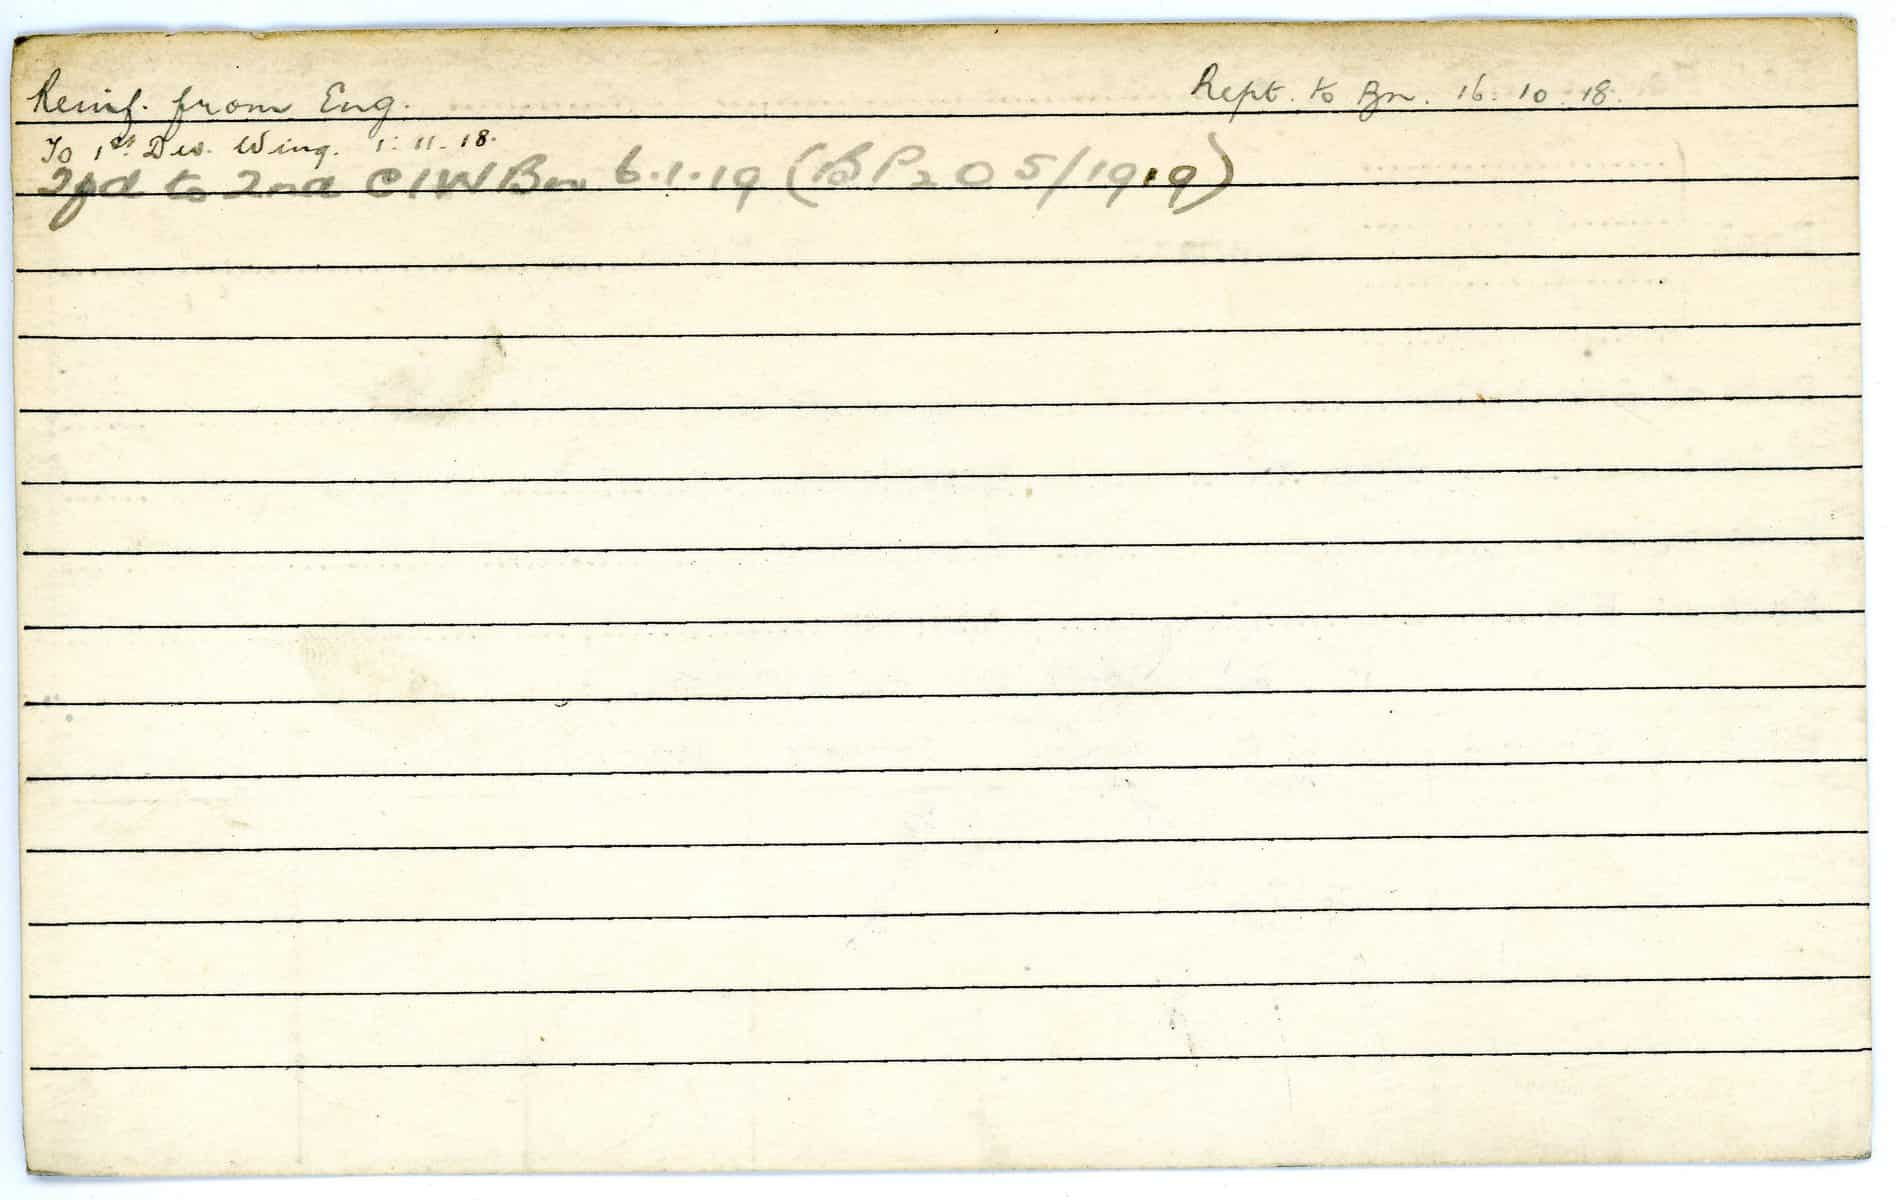 Reinf. from Eng. Rept. to Bn. 16. 10. 18.
To 1st Div. Wing. 1. 11. 18.
Tfd to 2nd CIW Bn 6.1.19 (BP2 O 5/1919)